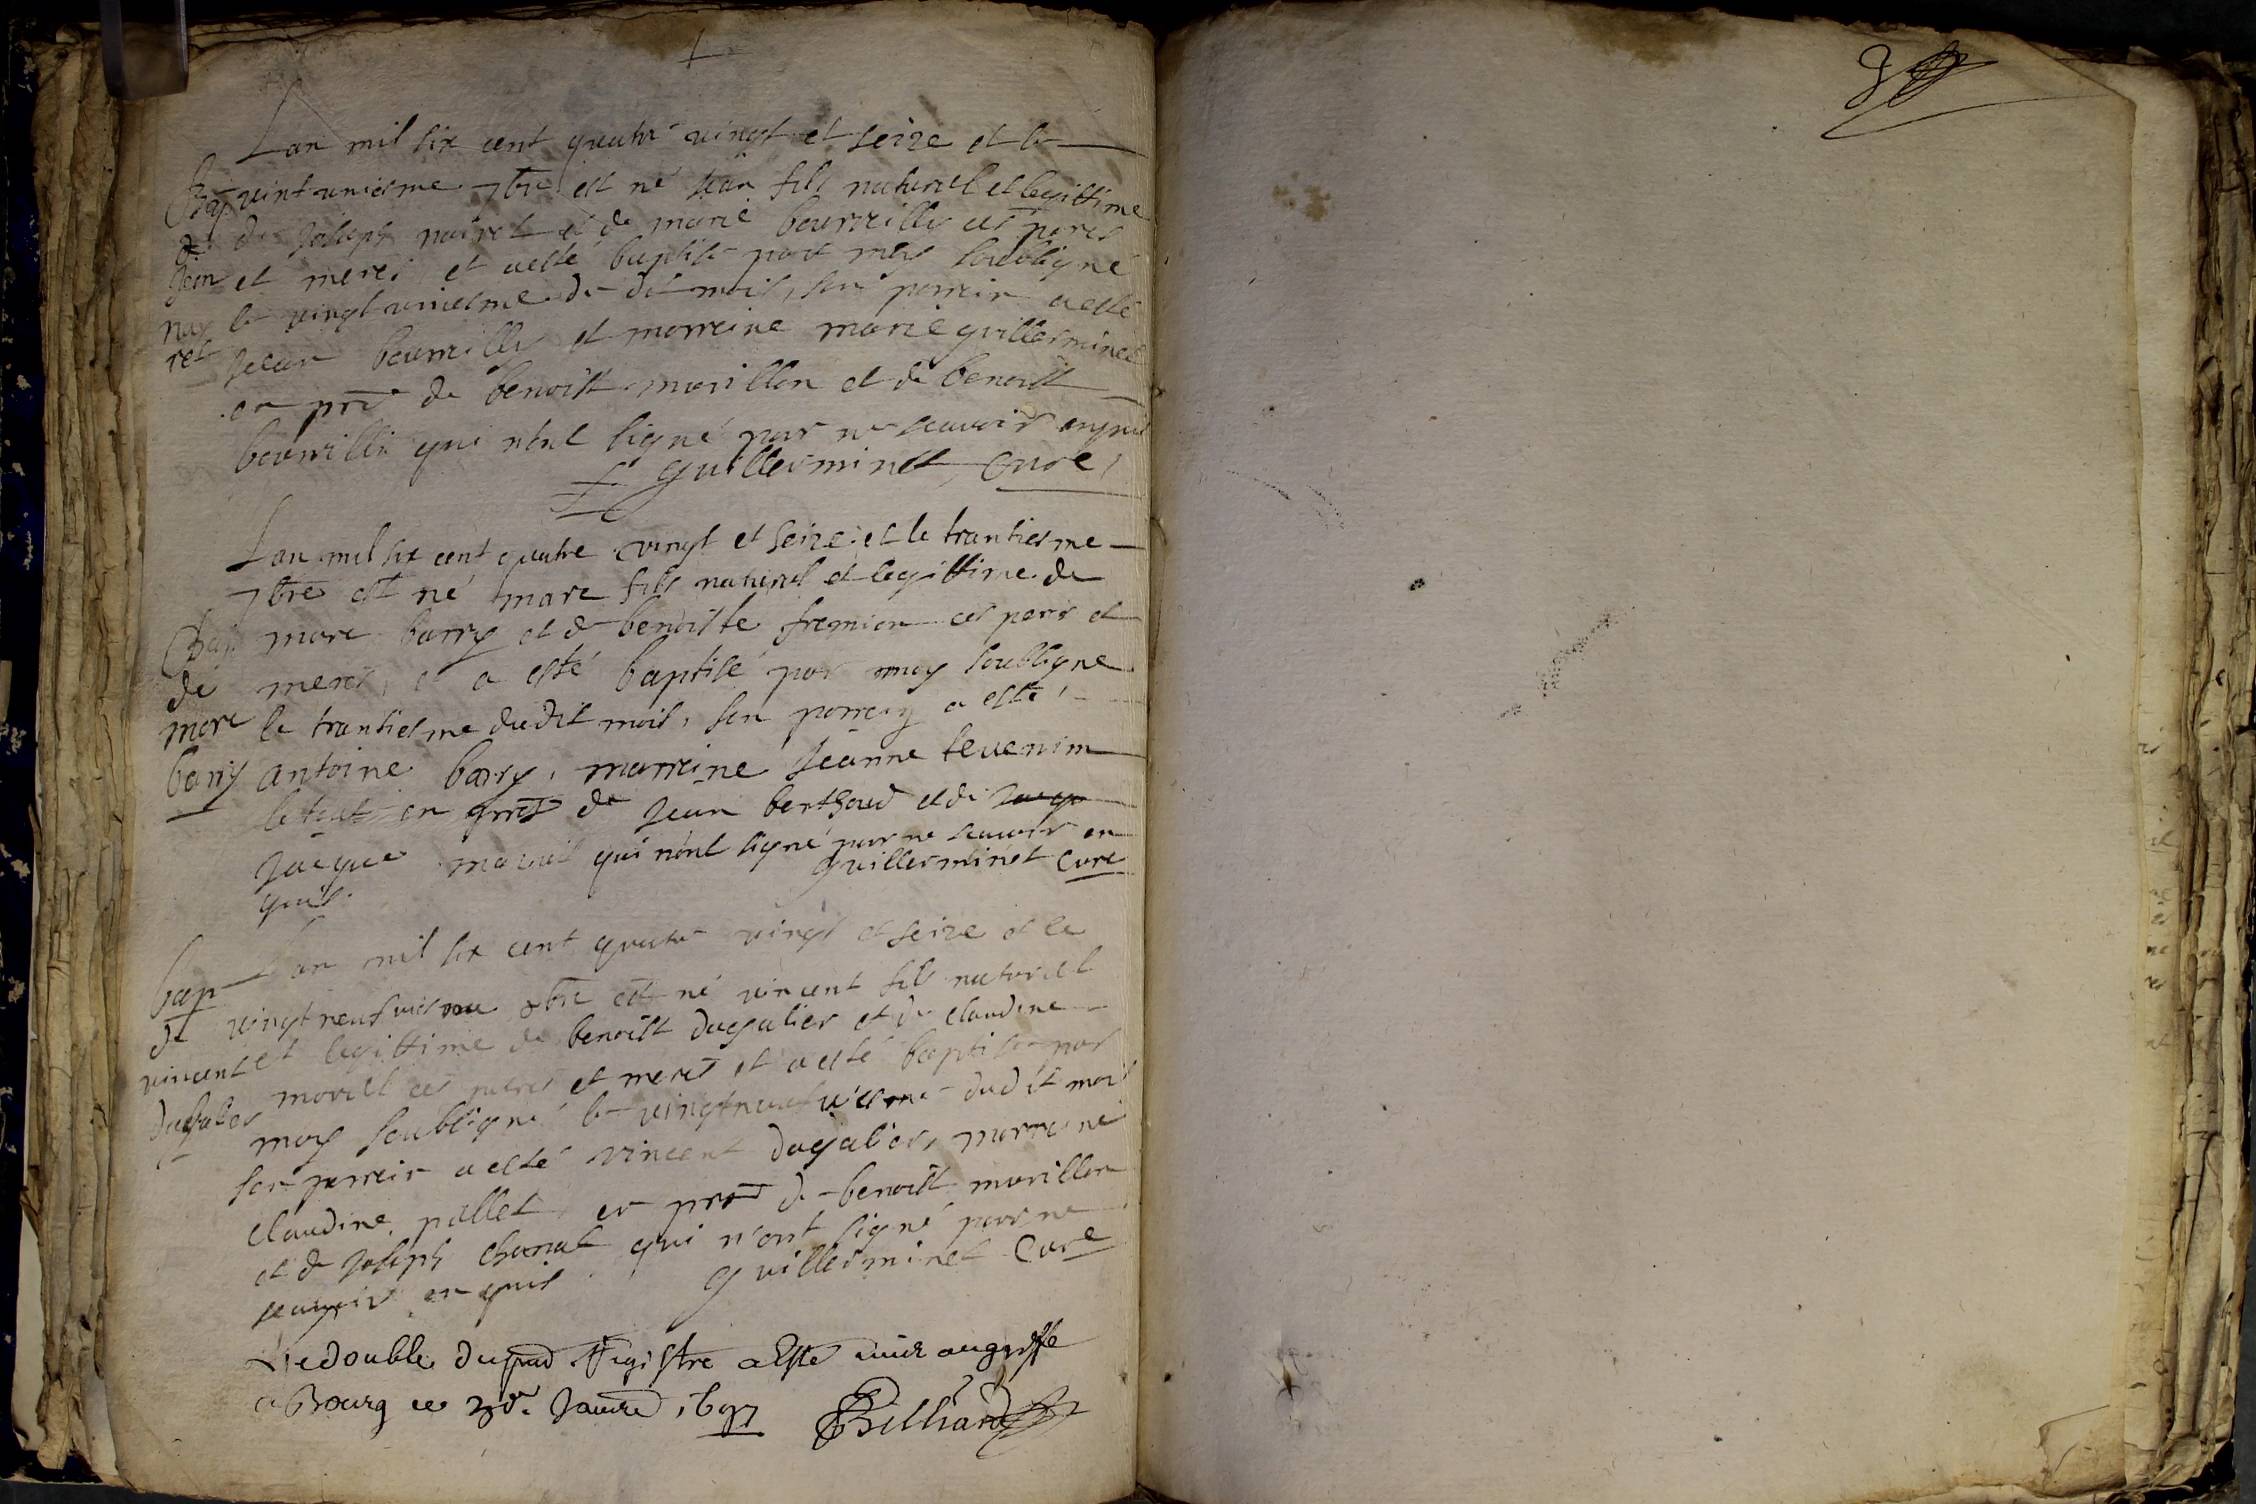 Lan mil six cent quatre vingt et seize et le
Bap vint uniesme 7bre est né Jean fils naturel et legittime
de de Joseph nairet et de marie bourcillis ces peres
Jean et meres et aesté baptisé par moy soubsigné
nay le vingt uniesme du dit mois, son parrein aesté
ret Jean et marreine marie guillerminet
en pnce de benoist morillon et de benoist
qui nônt signé pour ne scavoir enquis
guillerminet, Curé,
Lan mil six cent quatre vingt et seize et le trantiesme
7bre est né marc fils naturel et legittime de
Bap marc barry et de benoiste fremion ces peres et
de meres, et a esté baptisé par moy soubsigne
marc le trantiesme dudit mois, son parrein a esté
barry antoine barry, marreine Jeanne tevenin
le tout en pnce de Jean berthoud et de
Jacque moreil qui nônt signé pour ne scavoir en
quis. guillerminet Cure
bap Lan mil six cent quatre vingt et seize et le
de vingtneufviesme xbre est né vincent fils naturel
vincent et legittime de benoist dagalier et de claudine
dagalier morel ces peres et meres et aesté baptisé par
moy soubsigné le vingtneufviesme dudit mois
son parrein aesté vincent dagalier, marreine
claudine pallet, en pnce de benoist morillon
et de Joseph chanal qui nont signé pour ne
scavoir enquis guillerminet Cure
Le double du pnt Registre a Esté mis au greffe
a Bourg ce Janvier 1697 Billiard